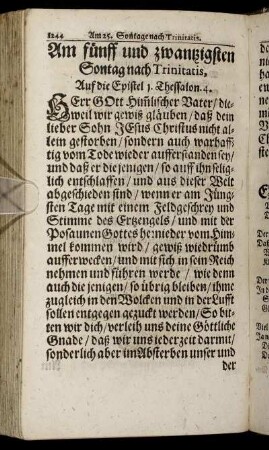 1244 Am 25. Sontage nach Trinitatis.
Am fünff und zwantzigsten
Sontag nach Trinitatis,
Auf die Epistel 1. Thessalon. 4.
HErr GOtt Him̄lischer Vater / die-
weil wir gewiß gläuben / daß dein
lieber Sohn JEsus Christus nicht al-
lein gestorben / sondern auch warhaff-
tig vom Tode wieder aufferstanden sey /
und daß er die jenigen / so auff ihn selig-
lich entschlaffen / und aus dieser Welt
abgeschieden sind / wenn er am Jüng-
sten Tage mit einem Feldgeschrey und
Stimme des Ertzengels / und mit der
Posaunen Gottes hernieder vom Him-
mel kommen wird / gewiß wiedrumb
aufferwecken / und mit sich in sein Reich
nehmen und führen werde / wie denn
auch die jenigen / so übrig bleiben / ihme
zugleich in den Wolcken und in der Lufft
sollen entgegen gezuckt werden / So bit-
ten wir dich / verleih uns deine Göttliche
Gnade / daß wir uns jederzeit darmit /
sonderlich aber im Absterben unser und
der